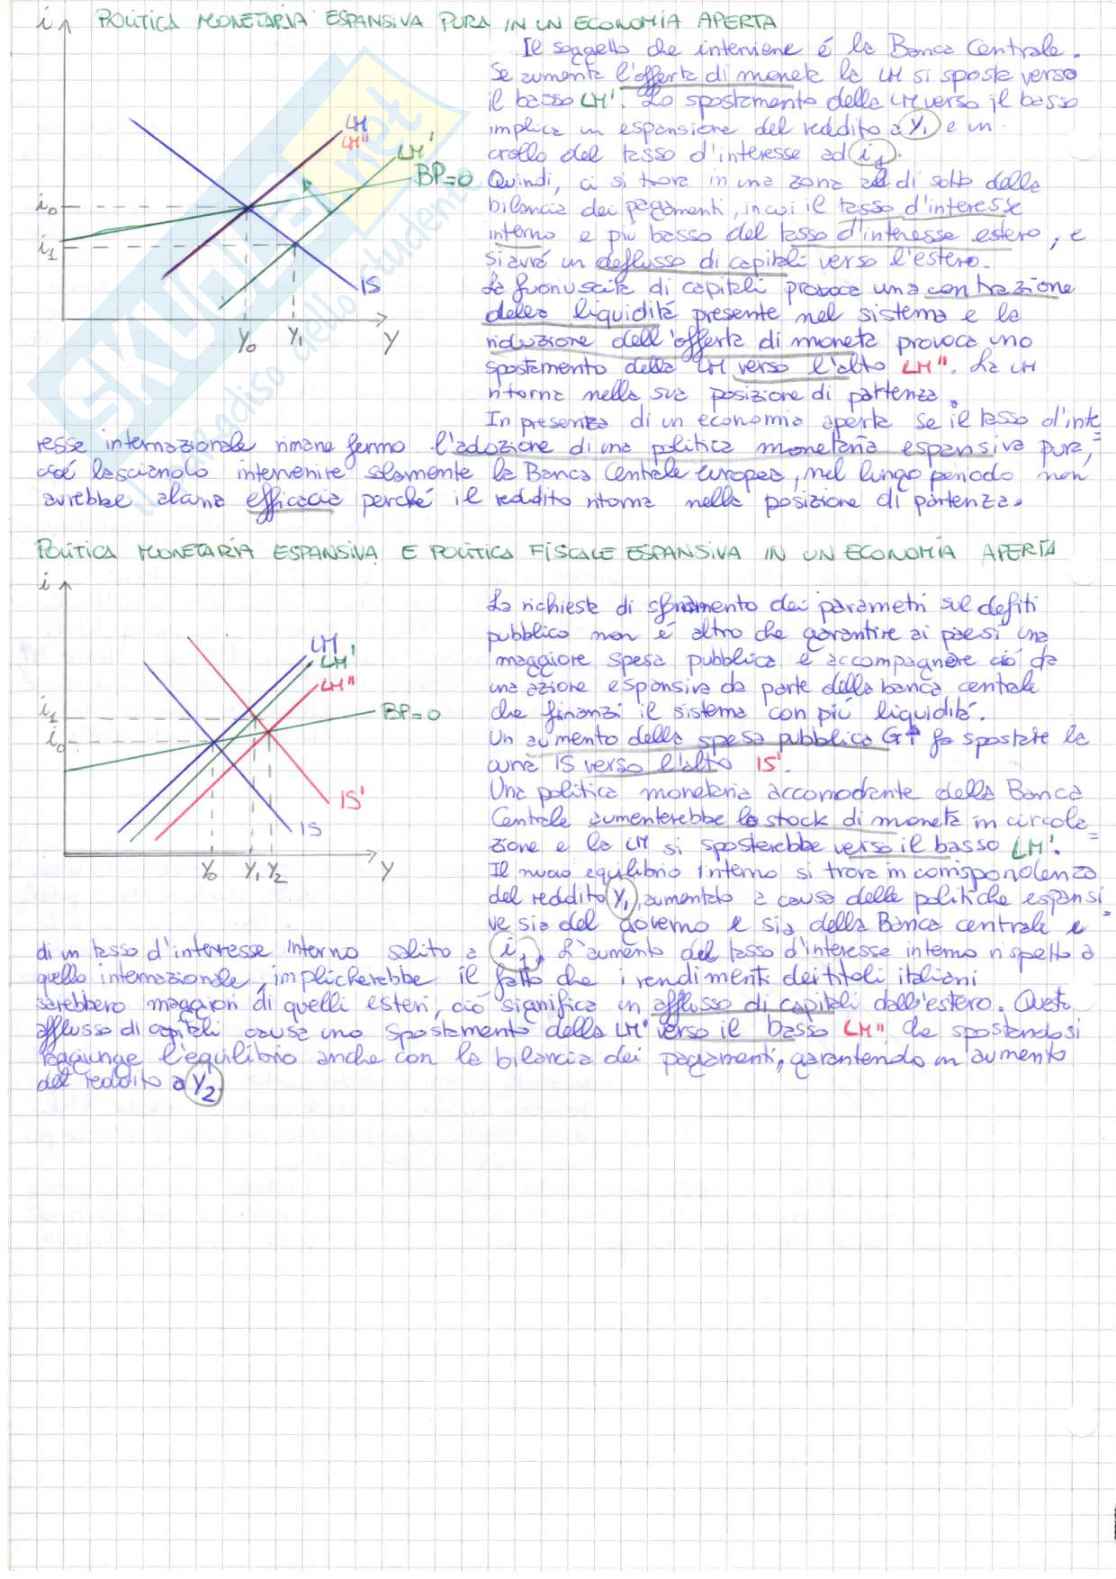 POLITICA MONETARIA ESPANSIVA PURA IN UN ECONOMIA APERTA
i
LM
LM"
LM'
BP=0
i₀
i₁
IS
Y₀
Y₁
Y
Il soggetto che interviene é la Banca Centrale.
Se aumenta l'offerta di moneta la LM si sposta verso
il basso LM'. Lo spostamento della LM verso il basso
implica un espansione del reddito a Y₁ e un
crollo del tasso d'interesse ad i₁.
Quindi, ci si trova in una zona al di sotto della
bilancia dei pagamenti, in cui il tasso d'interesse
interno e più basso del tasso d'interesse estero, e
si avrá un deflusso di capitali verso l'estero.
La fuoriuscita di capitali provoca una contrazione
della liquiditá presente nel sistema e la
riduzione dell'offerta di moneta provoca uno
spostamento della LM verso l'alto LM". La LM
ritorna nella sua posizione di partenza.
In presenza di un economia aperta se il tasso d'inte=
resse internazionale rimane fermo l'adozione di una politica monetaria espansiva pura,
cioé lasciando intervenire solamente la Banca Centrale europea, nel lungo periodo non
avrebbe alcuna efficacia perché il reddito ritorna nella posizione di partenza.
POLITICA MONETARIA ESPANSIVA E POLITICA FISCALE ESPANSIVA IN UN ECONOMIA APERTA
i
LM
LM'
LM"
BP=0
i₁
i₀
IS'
IS
Y₀
Y₁
Y₂
Y
La richiesta di sforamento dei parametri sul defiti
pubblico non é altro che garantire ai paesi una
maggiore spesa pubblica e accompagnare ció da
una azione espansiva da parte della banca centrale
che finanzi il sistema con piú liquiditá.
Un aumento della spesa pubblica G↑ fa spostare la
curva IS verso l'alto IS'.
Una politica monetaria accomodante della Banca
Centrale aumenterebbe lo stock di moneta in circola=
zione e la LM si sposterebbe verso il basso LM'.
Il nuovo equilibrio interno si trova in corrispondenza
del reddito Y₁, aumentato a causa delle politiche espansi=
ve sia del governo e sia della Banca centrale e
di un tasso d'interesse interno salito a i₁. L'aumento del tasso d'interesse interno rispetto a
quello internazionale, implicherebbe il fatto che i rendimenti dei titoli italiani
sarebbero maggiori di quelli esteri, ció significa un afflusso di capitali dall'estero. Questo
afflusso di capitali causa uno spostamento della LM' verso il basso LM" che spostandosi
raggiunge l'equilibrio anche con la bilancia dei pagamenti, garantendo un aumento
del reddito a Y₂.
SKUOLA.net
il paradiso dello studente